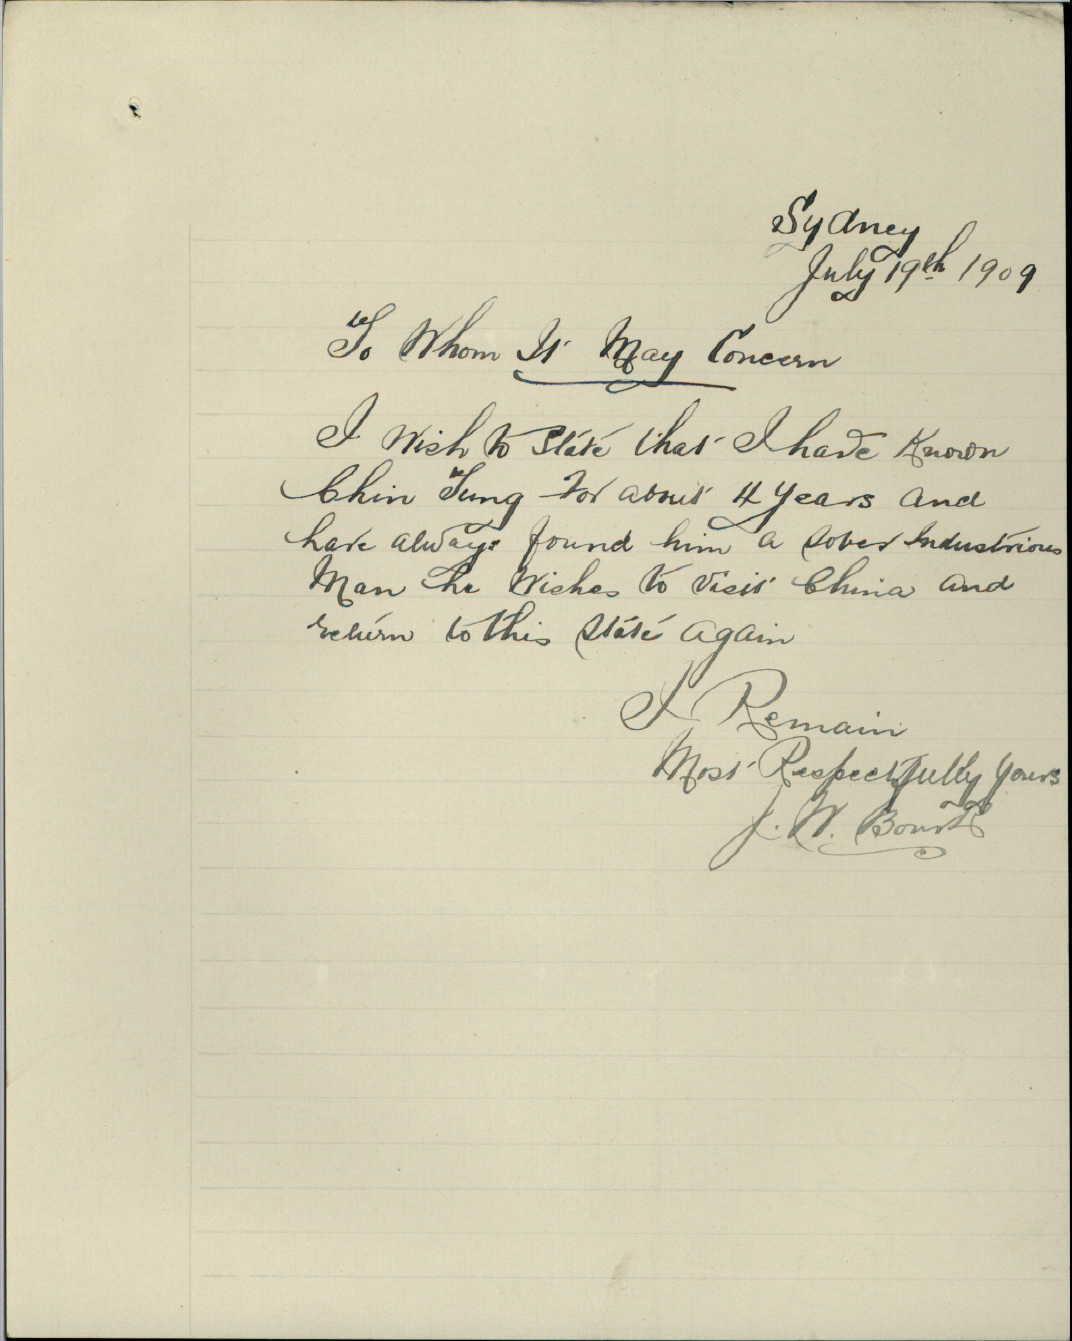 Sydney
July 19th 1909
To Whom It May Concern
I Wish to State that I have Known
Chin Tung for about 4 Years and
have always found him a sober Industrious
Man he Wishes to visit China and
return to this State again
I Remain
Most Respectfully Yours
J. W.